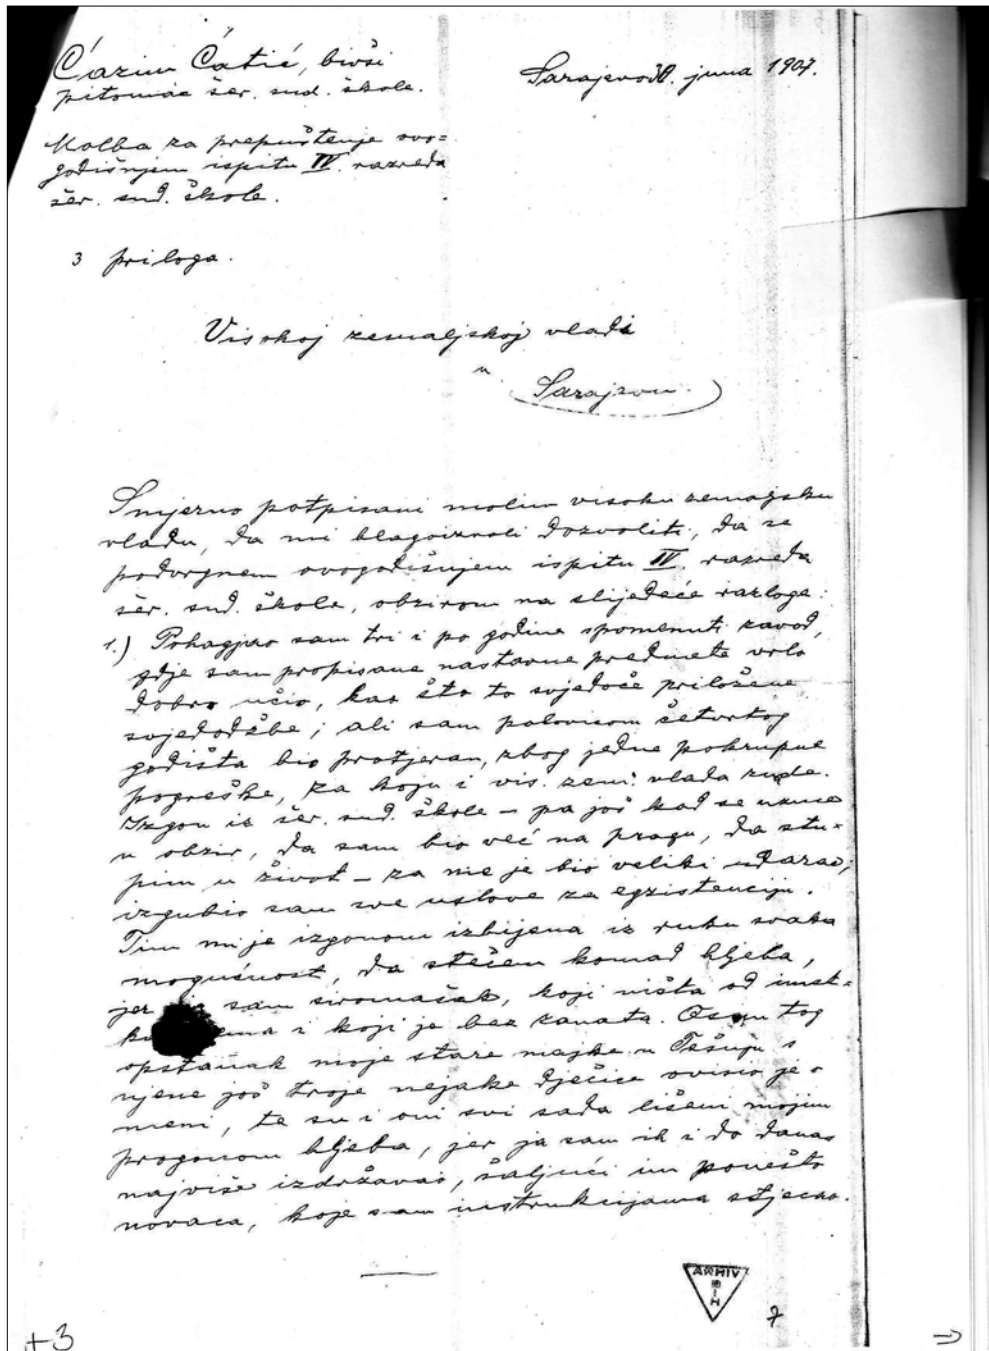 Ćazim Ćatić, bivši
pitomac šer. sud. škole.
Sarajevo 30. juna 1907.
Molba za prepuštenje ovo=
godišnjem ispitu IV. razreda
šer. sud. škole.
3 priloga.
Visokoj zemaljskoj vladi
u
Sarajevu.
Smjerno potpisani molim visoku zemaljsku
vladu, da mi blagoizvoli dozvoliti, da se
podvrgnem ovogodišnjem ispitu IV. razreda
šer. sud. škole, obzirom na slijedeće razloge:
1.) Pohagjao sam tri i po godine spomenuti zavod,
gdje sam propisane nastavne predmete vrlo
dobro učio, kao što to svjedoče priložene
svjedodžbe; ali sam polovicom četvrtog
godišta bio protjeran, zbog jedne pokrupne
pogreške, za koju i vis. zem. vlada znade.
Izgon iz šer. sud. škole – pa još kad se uzme
u obzir, da sam bio već na pragu, da stu=
pim u život – za me je bio veliki udarac;
izgubio sam sve uslove za egzistenciju.
Tim mi je izgonom izbijena iz ruku svaka
mogućnost, da stečem komad hljeba,
jer sam siromašak, koji ništa od imet=
i koji je bez zanata. Osim tog
opstanak moje stare majke u Tešnju i
njene još troje nejake dječice ovisio je o
meni, te su i oni svi sada lišeni mojim
progonom hljeba, jer ja sam ih i do danas
najviše izdržavao, šaljući im ponešto
novaca, koje sam instrukcijama stjecao.
ARHIV
BIH
7
+3